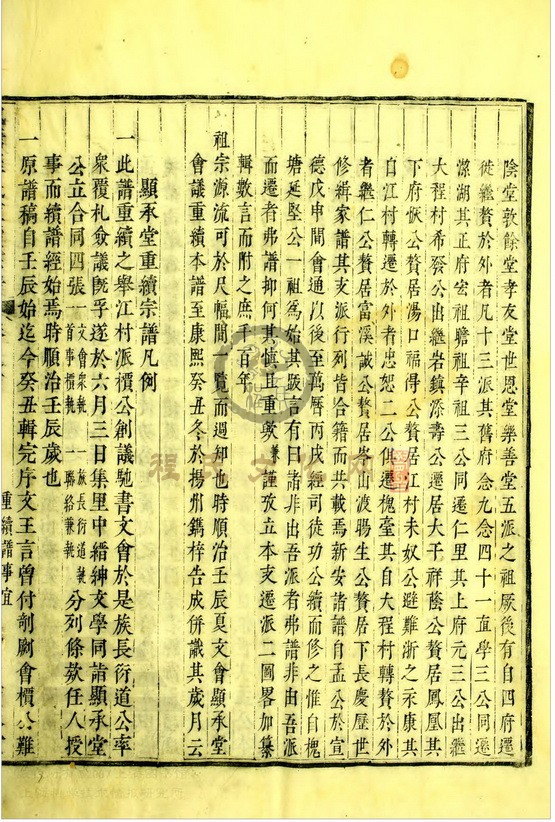 陰堂敦餘堂孝友堂世恩堂樂善堂五派之祖厥後有自四府遷
徙繼贅於外者凡十三派其舊府念九念四十一直學三公同遷
溪湖其正府宏祖瞻祖辛祖三公同遷仁里其上府元三公出繼
大程村希發公出繼岩鎮添壽公遷居大于祥蔭公贅居鳳凰其
下府佚公贅居湯口福得公贅居江村未奴公避難浙之永康其
自江村轉遷於外者忠恕二公俱遷槐臺其自大程村轉贅於外
者繼仁公贅居富溪誠公贅居孝山渡賜生公贅居下長慶歷世
修緝家譜其支派行列皆合籍而共載焉新安諸譜自孟公於宣
德戊申間會通以後至萬曆丙戌經司徒功公續而修之惟自槐
塘延堅公一祖為始其跋言有曰諸非出吾派者弗譜非由吾派
而遷者弗譜抑何其慎且重歟兼謹攷立本支遷派二圖畧加纂
輯數言而附之庶千百年
祖宗源流可於尺幅間一覽而週却也時順治壬辰夏文會顯承堂
會議重續本譜至康熙癸丑冬於揚州鐫梓告成併識其歲月云
顯承堂重續宗譜凡例
一此譜重續之舉江村派檟公創議馳書文會於是族長衍道公率
衆覆札僉議旣孚遂於六月三日集里中縉紳文學同詣顯承堂
公立合同四張一文會衆執一首事檟執一族長衍道執一聯絡兼執分列條欵任人授
事而續譜經始焉時順治壬辰歲也
一原譜稿自壬辰始迄今癸丑輯完序文王言曾付剞劂會檟公難
重續譜事宜
程氏文化網